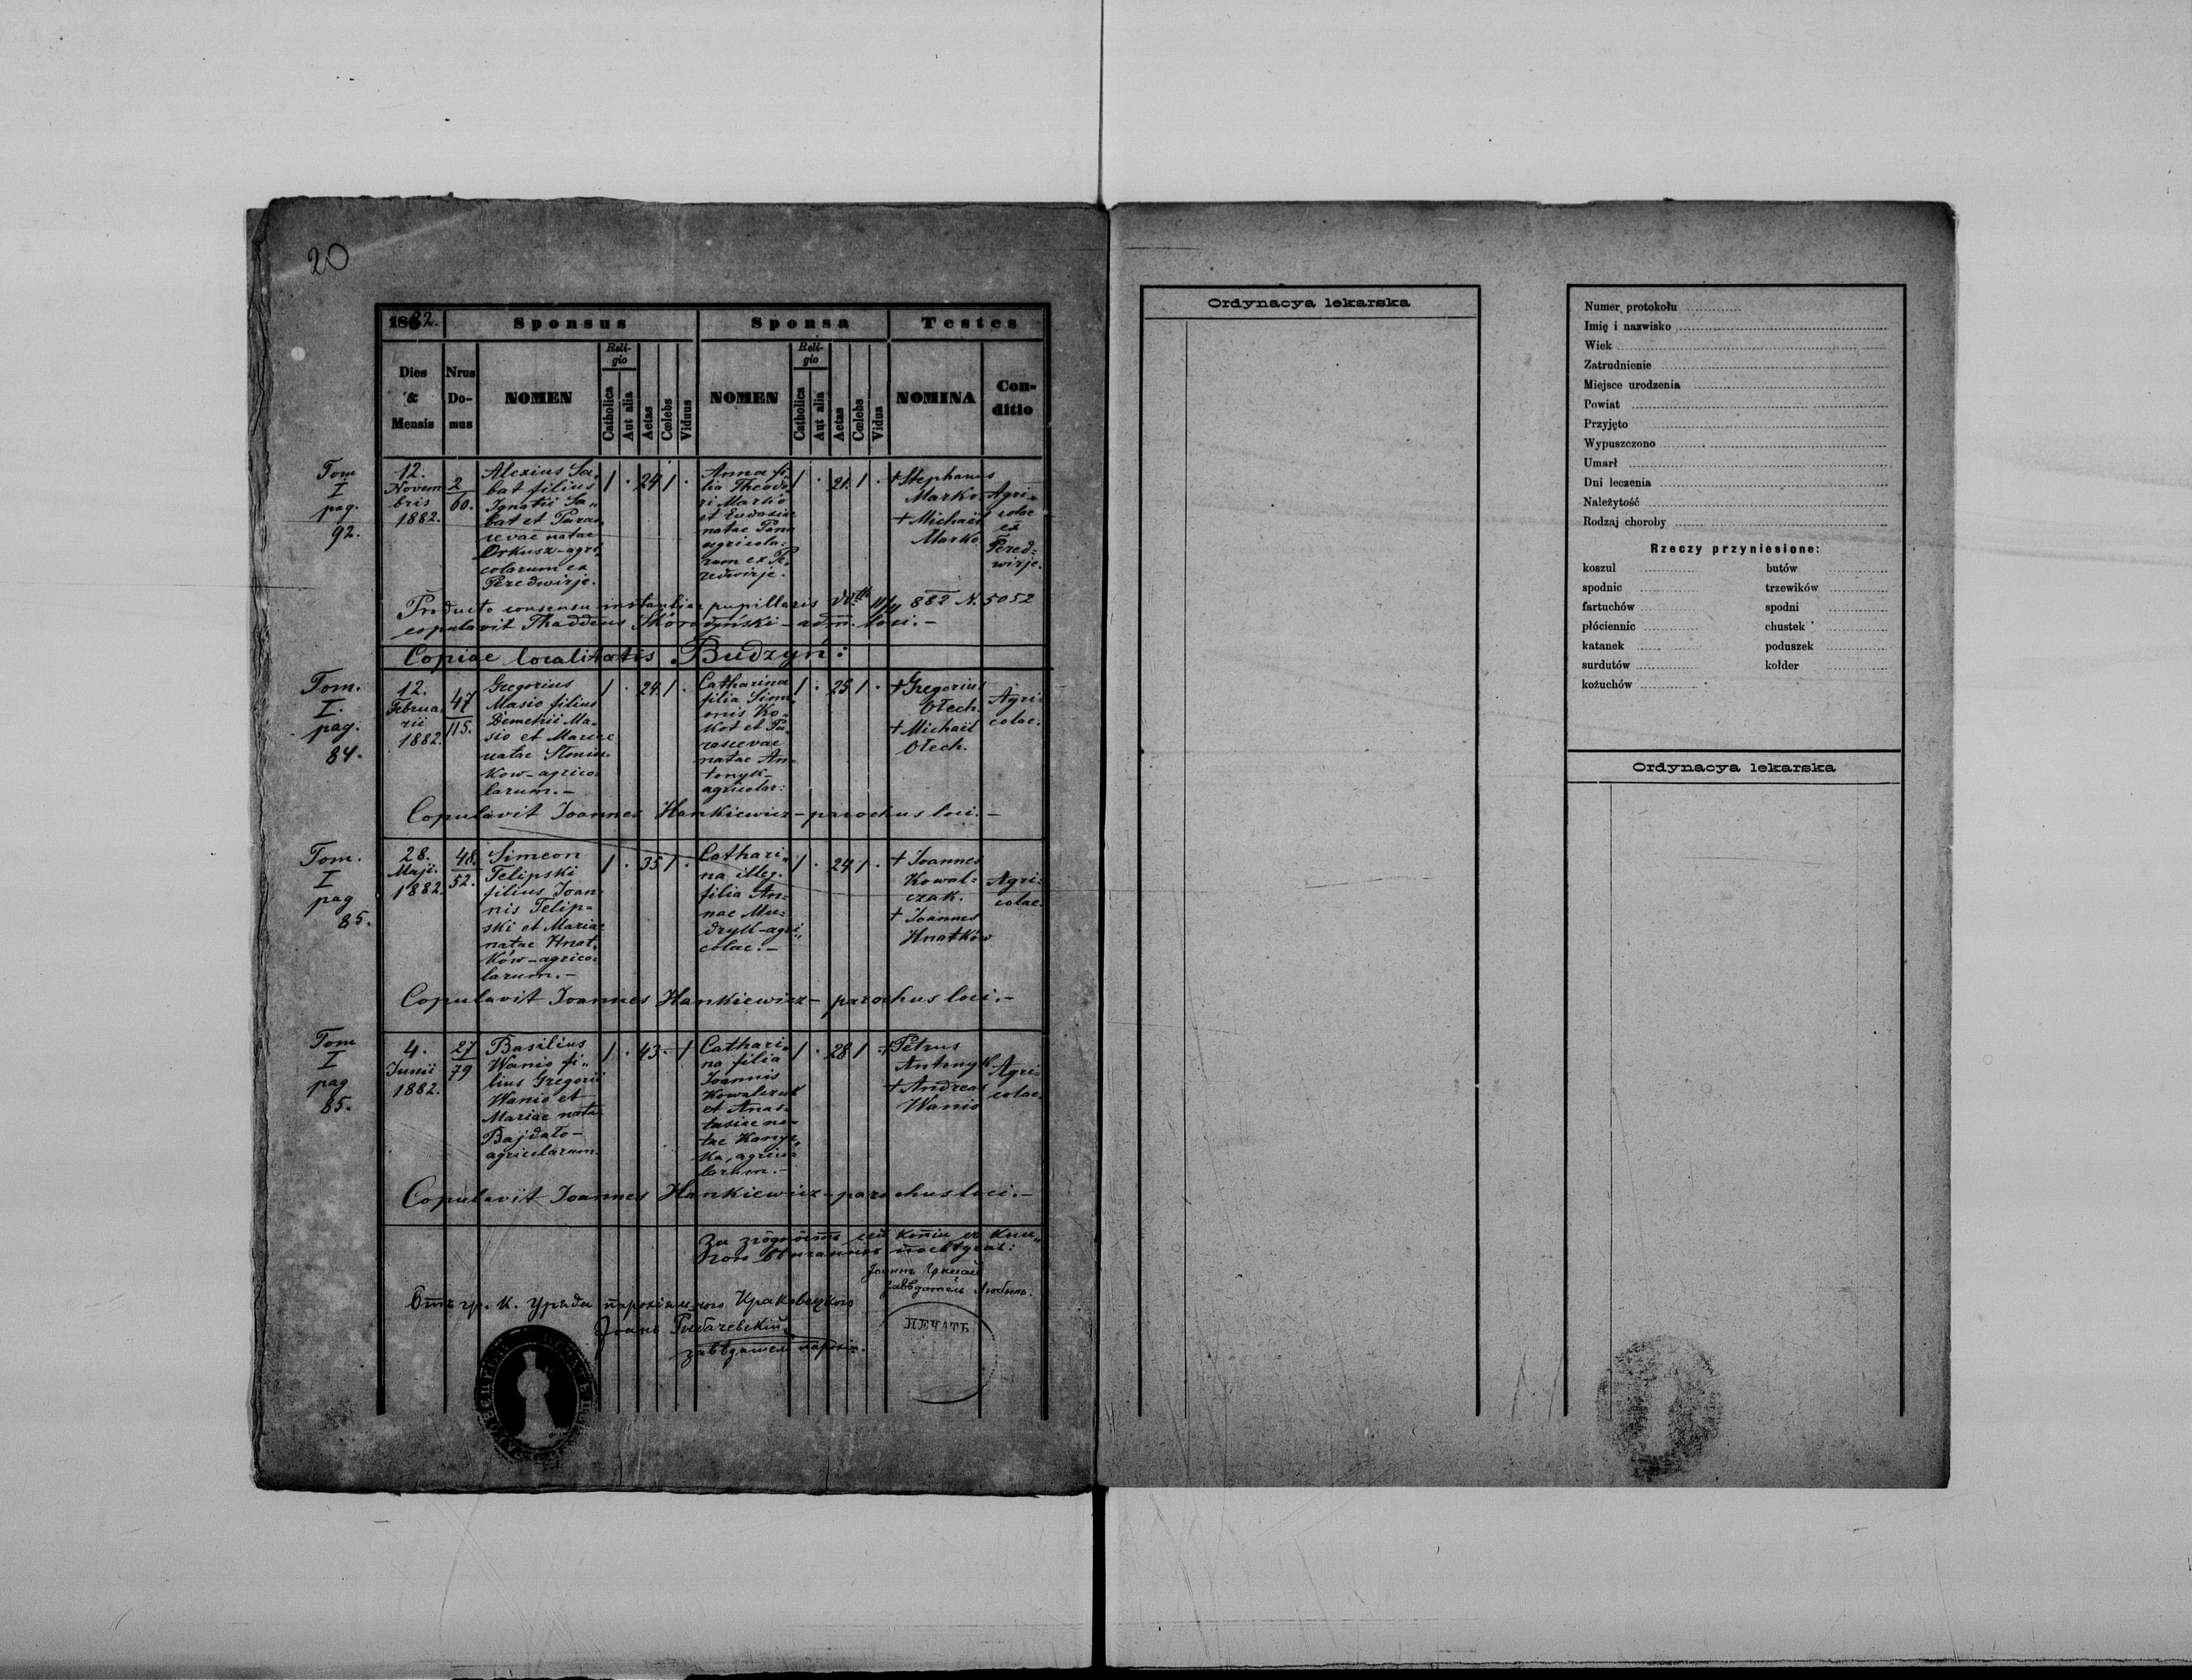 20
1882.
Sponsus
Sponsa
Testes
Dies
&
Mensis
Nrus
Do-
mus
NOMEN
Reli-
gio
Catholica
Aut alia
Aetas
Cœlebs
Viduus
NOMEN
Reli-
gio
Catholica
Aut alia
Aetas
Cœlebs
Vidua
NOMINA
Con-
ditio
Tom
I
pag.
92.
12.
Novem
bris
1882.
2
60.
Alexius Sa„
bat filius
Ignatii Sa„
bat et Paras„
cevae natae
Orkusz-agri
colarum ex
Peredwirje.
1 . 24 1 .
Anna fi„
lia Theodo
ri Marko
et Eudosiae
natae
agricola:
rum ex Pe„
redwirje.
1 . 21. 1 .
+ Stephanus
Marko.
+ Michaël
Marko
Agri„
colae
ex
Pered=
wirje.
Producto consensu instantiae pupillaris 11/11 882 N. 5052
copulavit Thaddeus Skorodyński – adm. loci. –
Copiae localitatis Budzyń:
Tom.
I.
pag.
84.
12.
Februa
rii
1882.
47
115.
Gregorius
Masio filius
Demetrii Ma-
sio et Mariae
natae
kow-agrico
larum. –
1 . 24. 1 .
Catharina
filia Sime
onis Ko„
kot et Pa„
rascevae
natae An-
tonyk-
agricolar:
1 . 25 1 .
+ Gregorius
Ołech.
+ Michaël
Ołech.
Agri
colae.
Copulavit Joannes Hankiewicz – parochus loci. –
Tom.
I
pag
85.
28.
Maji.
1882.
48.
52.
Simeon
Telipski
filius Joan-
nis Telip-
ski et Mariae
natae Hnat„
ków-agrico:
larum. –
1 . 35 1 .
Cathari„
na illeg.
filia An-
nae Mu-
dryk-agri„
colae. –
1 . 24 1 .
+ Joannes
Kowal=
czak.
+ Joannes
Hnatków
Agri:
colae.
Copulavit Joannes Hankiewicz – parochus loci. –
Tom
I
pag
85.
4.
Junii
1882.
27
79
Basilius
Wanio fi„
lius Gregorii
Wanio et
Mariae natae
Bajdało –
agricolarum.
1 . 43. – 1
Cathari„
na filia
Joannis
Kowalczak
et Anas-
tasiae na-
tae Kanye„
ka, agrico
larum. –
1 . 28 1 .
+ Petrus
Antonyk
+ Andreas
Wanio
Agri=
colae.
Copulavit Joannes Hankiewicz – parochus loci. –
За сеи копіи
Іоаннъ
Завѣдатель
Отъ гр. к. Уряда парохіального Краковецкого
Іоаннъ
завѣдатель парохіи.
ПЕЧАТЬ
Ordynacya lekarska
Numer protokołu
Imię i nazwisko
Wiek
Zatrudnienie
Miejsce urodzenia
Powiat
Przyjęto
Wypuszczono
Umarł
Dni leczenia
Należytość
Rodzaj choroby
Rzeczy przyniesione:
koszul
butów
spodnic
trzewików
fartuchów
spodni
płóciennic
chustek
katanek
poduszek
surdutów
kołder
kożuchów
Ordynacya lekarska